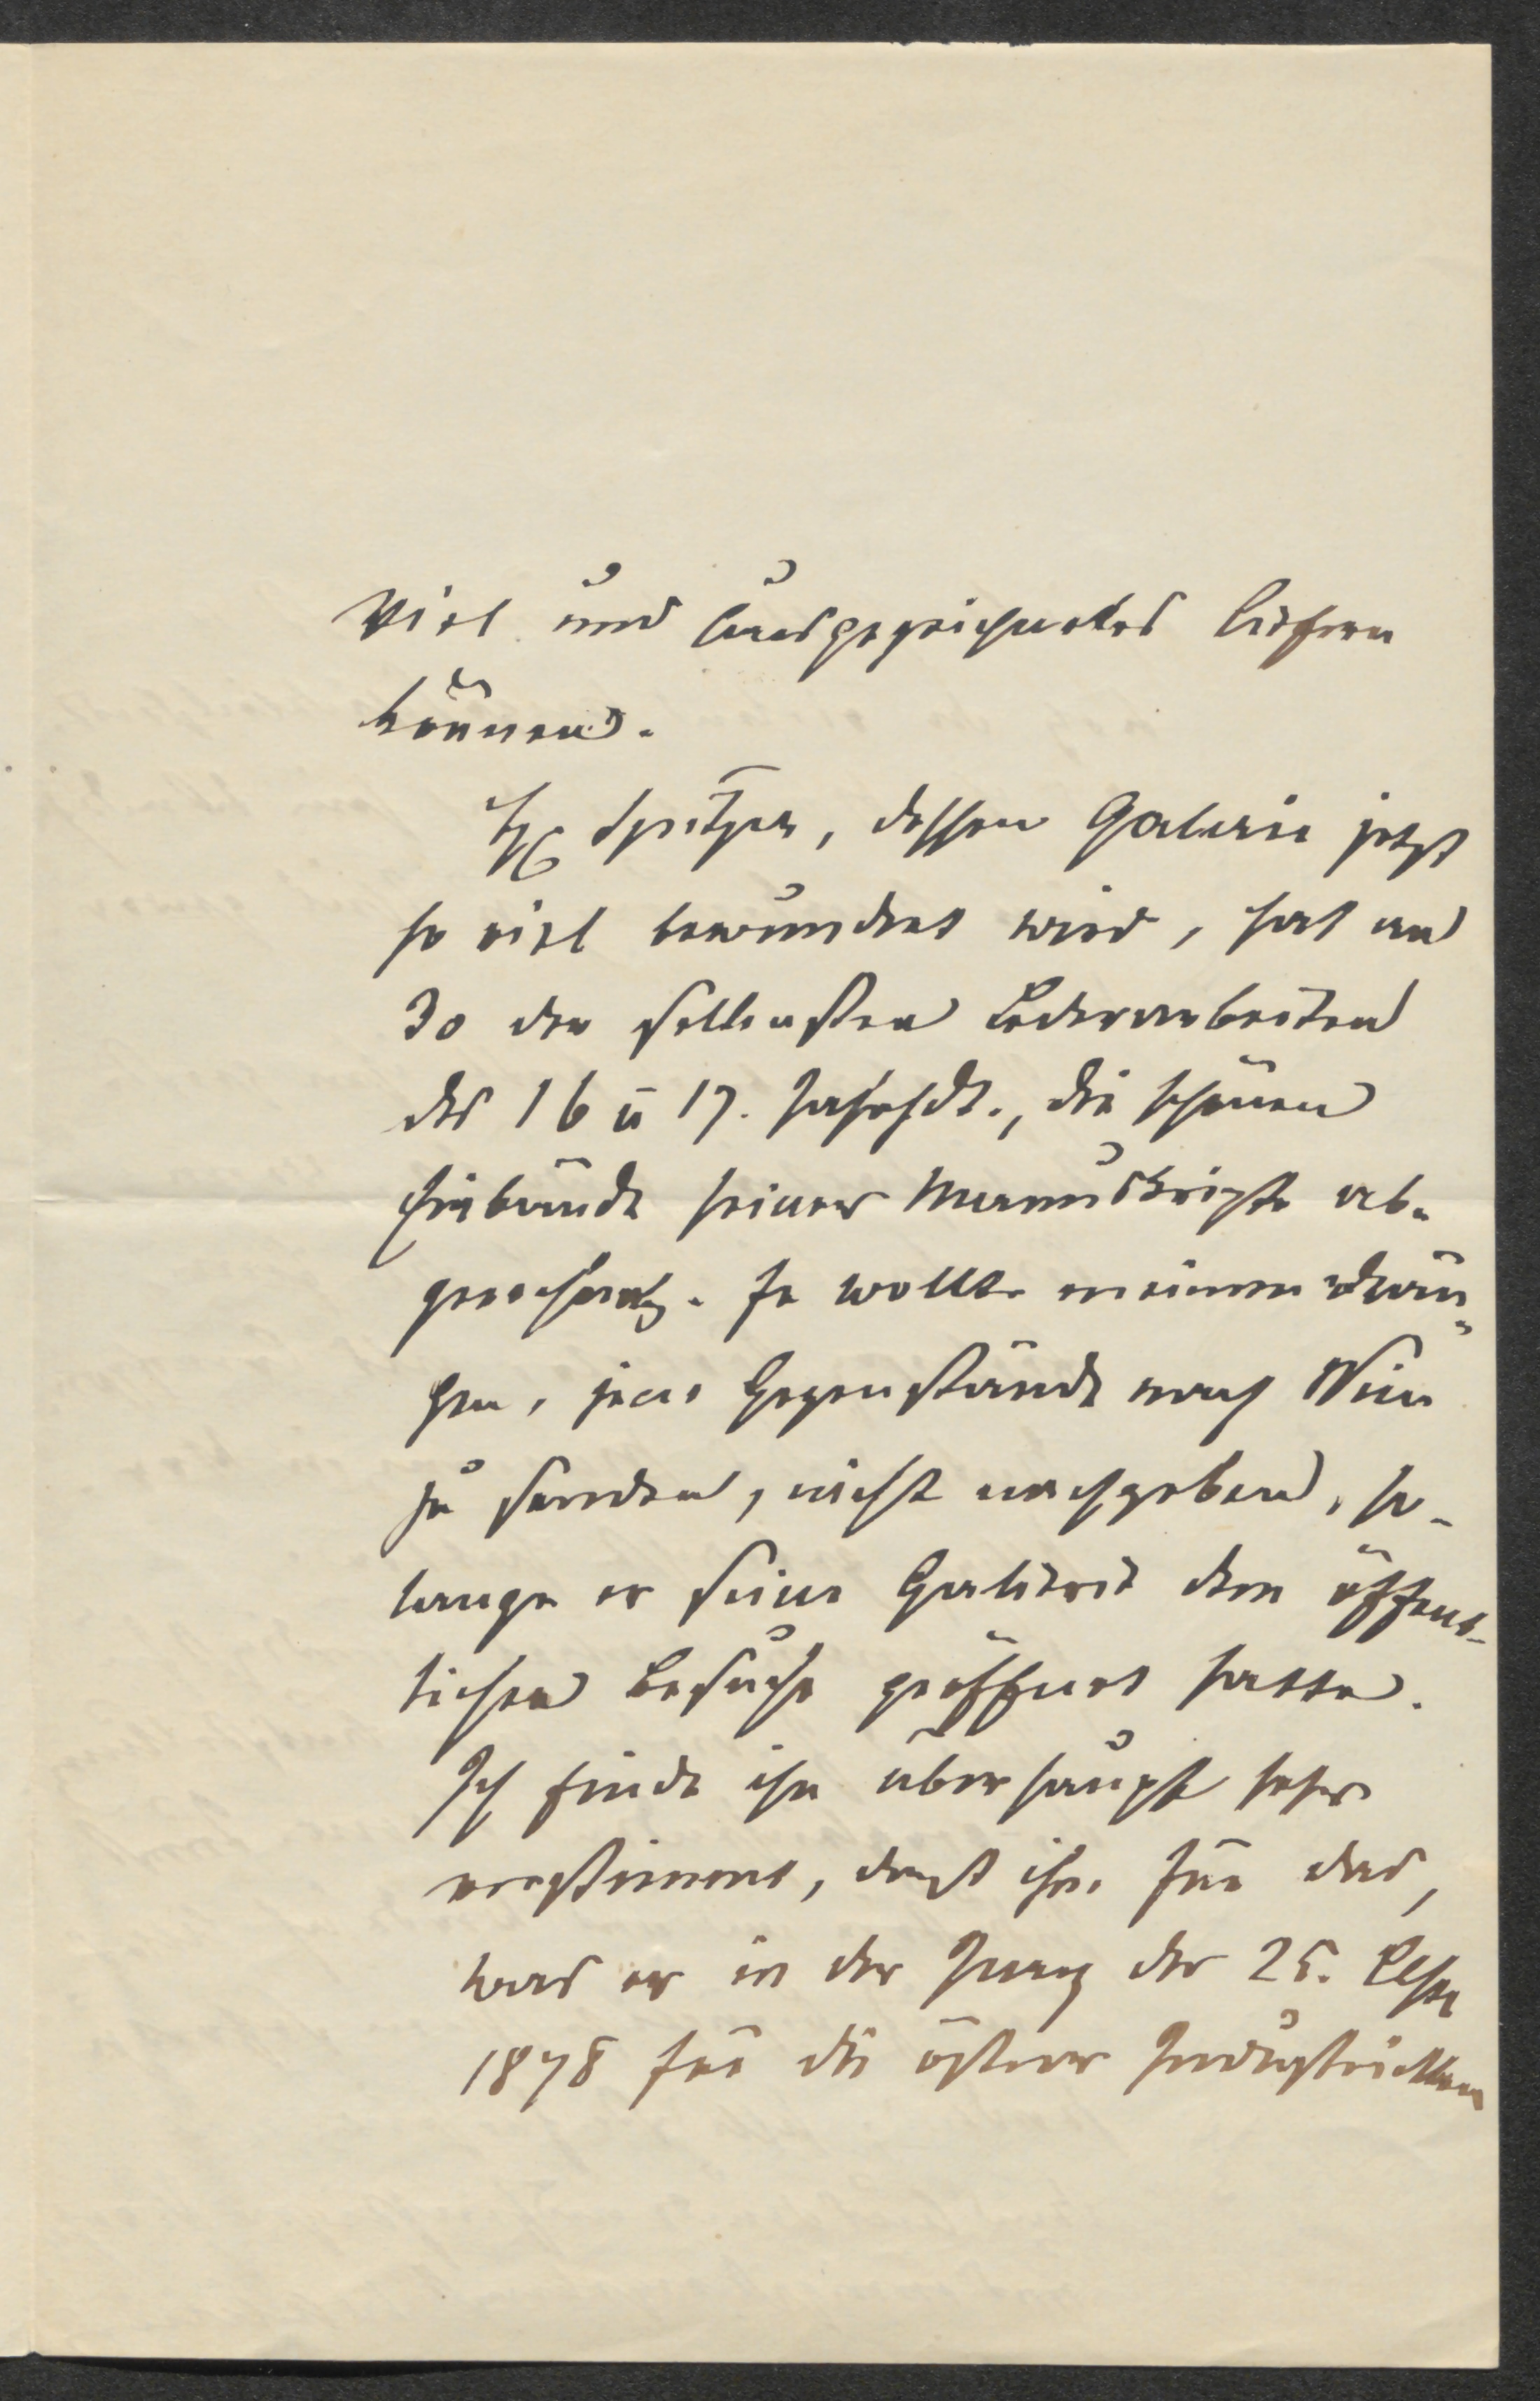 Viel und Ausgezeichnetes liefern
können.
H. Spitzer, dessen Galerie jetzt
so viel bewundert wird, hat an
30 der seltensten Lederarbeiten
des 16 u 17. Jahrhdt., die schönen
Einbände seiner Manuskripte ab-
gerechnet. Er wollte meinem Drän-
gen, jene Gegenstände nach Wien
zu senden, nicht nachgeben, so-
lange er seine Gallerie dem öffent-
lichen Besuche geöffnet hatte.
Ich finde ihn überhaupt sehr
verstimmt, daß ihm für das,
was er in der Jury der 25. Classe
1878 für die österr Industriellen